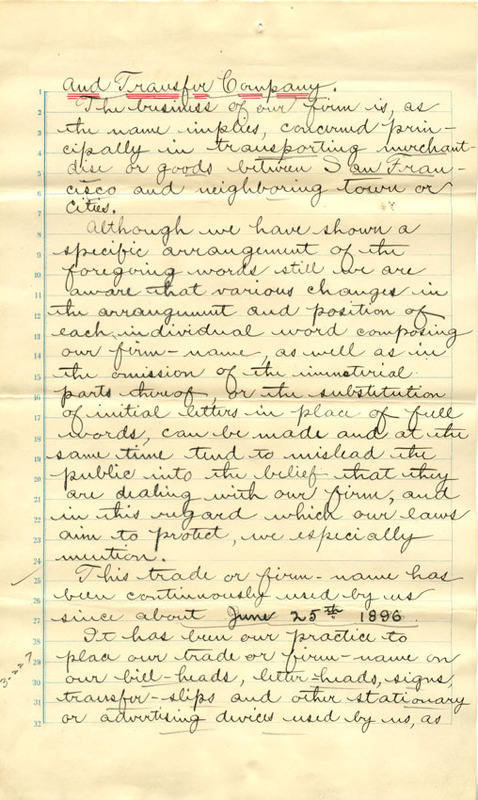 and Transfer Company.
The business of our firm is, as
the name implies, concerned prin-
cipally in transporting merchant-
dise or goods between San Fran-
cisco and neighboring town or
cities.
Although we have shown a
specific arrangement of the
foregoing words still we are
aware that various changes in
the arrangement and position of
each individual word composing
our firm-name, as well as in
the omission of the immaterial
parts thereof, or the substitution
of initial letters in place of full
words, can be made and at the
same time tend to mislead the
public into the belief that they
are dealing with our firm, and
in this regard which our laws
aim to protect, we especially
mention.
This trade or firm-name has
been continuously used by us
since about June 25th 1896.
It has been our practice to
place our trade or firm-name on
our bill-heads, letter-heads, signs,
transfer-slips and other stationary
or advertising devices used by us, as
1
2
3
4
5
6
7
8
9
10
11
12
13
14
15
16
17
18
19
20
21
22
23
24
25
26
27
28
29
30
31
32
3-227